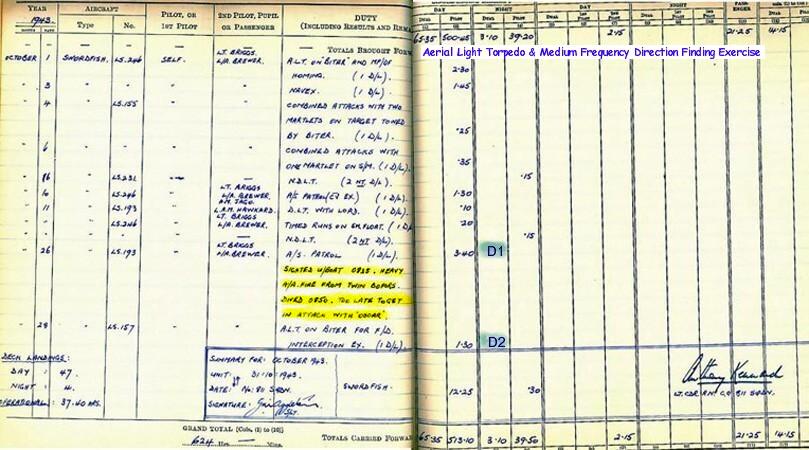 YEAR
1943.
AIRCRAFT
PILOT, OR
1ST PILOT
2ND PILOT, PUPIL
OR PASSENGER
DUTY
(INCLUDING RESULTS AND REMA
MONTH DATE Type No.
TOTALS BROUGHT FORW
OCTOBER 1 SWORDFISH. LS.246 SELF. LT. BRIGGS L/A. BREWER. A.L.T. ON "BITER" AND MF/DF
HOMING. (1 D/L)
" 3 " " " " NAVEX. (1 D/L)
" 4 " LS.155 " — COMBINED ATTACKS WITH TWO
MARTLETS ON TARGET TOWED
BY BITER. (1 D/L)
" 6 " " " — COMBINED ATTACKS WITH
ONE MARTLET ON S/M. (1 D/L)
LS.231 — N.D.L.T. (2 NT D/L)
" 10 " LS.246 " LT. BRIGGS L/A. BREWER. A/S PATROL (1 D/L)
" 11 " LS.193 " L.A.M. HAWKARD. D.L.T. WITH LORD. (1 D/L)
" " " LS.246 " LT. BRIGGS L/A. BREWER. TIMED RUNS ON SM. FLOAT. (1 D/
N.D.L.T. (2 NT D/L)
" 26 " LS.193 " LT. BRIGGS L/A. BREWER. A/S. PATROL (1 D/L)
SIGHTED U/BOAT 0825. HEAVY
A/A. FIRE FROM TWIN BOFORS.
DIVED 0850. TOO LATE TO GET
IN ATTACK WITH "OSCAR".
" 28 " LS.157 " " A.L.T. ON BITER FOR F/D.
INTERCEPTION EX. (1 D/L)
DECK LANDINGS:
DAY : 47.
NIGHT : 4.
OPERATIONAL : 37.40 HRS.
SUMMARY FOR: OCTOBER 1943.
UNIT:
DATE: 31-10-1943.
SIGNATURE:
SWORDFISH.
GRAND TOTAL [Cols. (1) to (10)]
624 Hrs. — Mins.
TOTALS CARRIED FORWAR
DAY NIGHT DAY NIGHT
65.35 500.45 3.10 39.20 2.15 21.25 14.15
Aerial Light Torpedo & Medium Frequency Direction Finding Exercise
2.30
1.45
.25
.35
.15
1.30
.10
.20
.15
3.40 D1
1.30 D2
12.25 .30
65.35 513.10 3.10 39.50 2.15 21.25 14.15